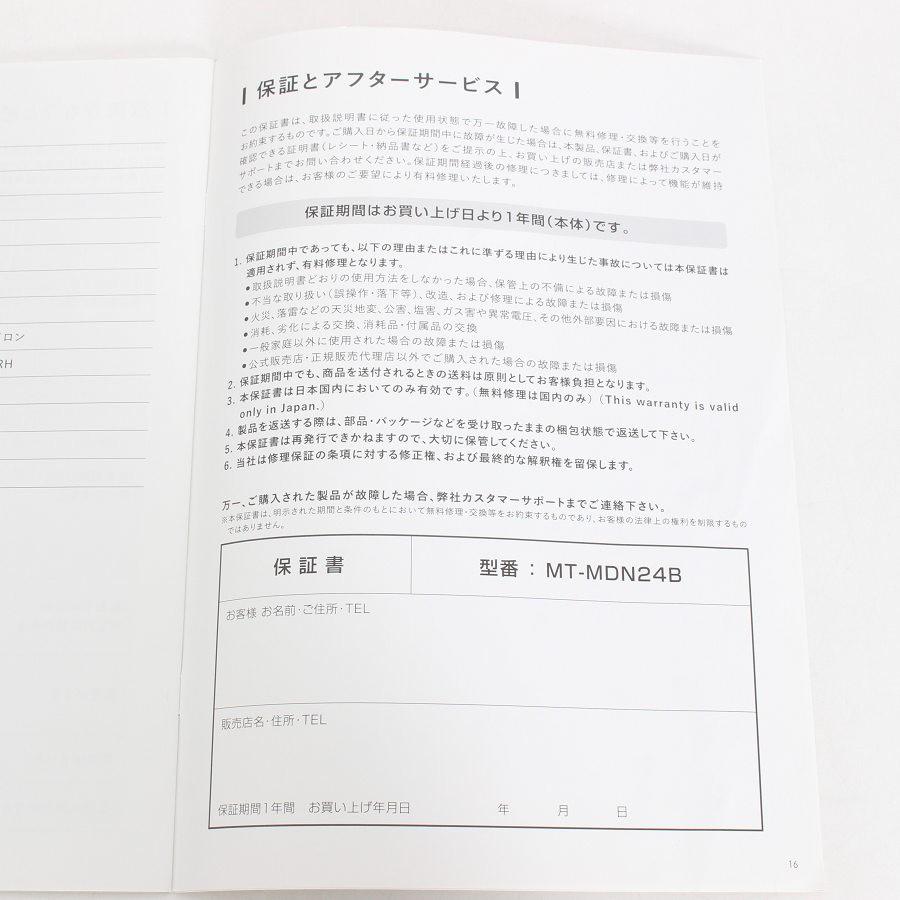 イロン
RH
保証とアフターサービス
この保証書は、取扱説明書に従った使用状態で万一故障した場合に無料修理・交換等を行うことを
お約束するものです。ご購入日から保証期間中に故障が生じた場合は、本製品、保証書、およびご購入日が
確認できる証明書(レシート・納品書など)をご提示の上、お買い上げの販売店または弊社カスタマー
サポートまでお問い合わせください。保証期間経過後の修理につきましては、修理によって機能が維持
できる場合は、お客様のご要望により有料修理いたします。
保証期間はお買い上げ日より1年間(本体)です。
1. 保証期間中であっても、以下の理由またはこれに準ずる理由により生じた事故については本保証書は
適用されず、有料修理となります。
●取扱説明書どおりの使用方法をしなかった場合、保管上の不備による故障または損傷
●不当な取り扱い(誤操作・落下等)、改造、および修理による故障または損傷
●火災、落雷などの天災地変、公害、塩害、ガス害や異常電圧、その他外部要因における故障または損傷
●消耗、劣化による交換、消耗品・付属品の交換
●一般家庭以外に使用された場合の故障または損傷
●公式販売店・正規販売代理店以外でご購入された場合の故障または損傷
2. 保証期間中でも、商品を送付されるときの送料は原則としてお客様負担となります。
3. 本保証書は日本国内においてのみ有効です。(無料修理は国内のみ) (This warranty is valid
only in Japan.)
4. 製品を返送する際は、部品・パッケージなどを受け取ったままの梱包状態で返送して下さい。
5. 本保証書は再発行できかねますので、大切に保管してください。
6. 当社は修理保証の条項に対する修正権、および最終的な解釈権を留保します。
万一、ご購入された製品が故障した場合、弊社カスタマーサポートまでご連絡下さい。
※本保証書は、明示された期間と条件のもとにおいて無料修理・交換等をお約束するものであり、お客様の法律上の権利を制限するもの
ではありません。
保証書
型番 : MT-MDN24B
お客様 お名前・ご住所・TEL
販売店名・住所・TEL
保証期間1年間 お買い上げ年月日 年 月 日
16